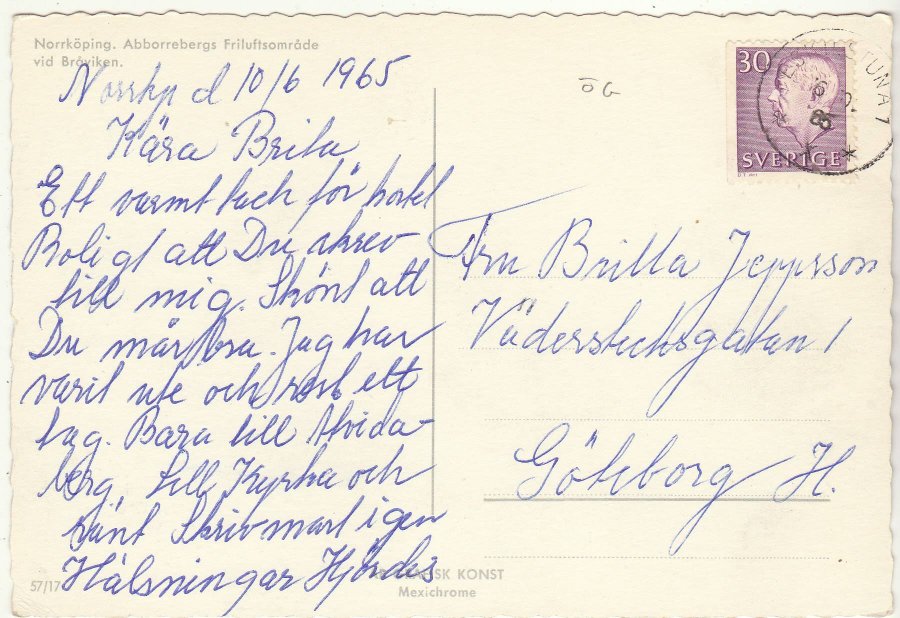 Norrköping. Abborrebergs Friluftsområde
vid Bråviken.
Norrkp d 10/6 1965
Kära Brita
Ett varmt tack för kortet
Roligt att Du skrev
till mig. Skönt att
Du mår bra. Jag har
varit ute och rest ett
tag. Bara till Åtvida-
berg, till Kyrka och
sånt Skriv snart igen
Hälsningar Hjördis
57/17
SVENSK KONST
Mexichrome
ÖG
30
SVERIGE
TUNA 1
65
Fru Britta Jeppsson
Väderstecksgatan 1
Göteborg H.